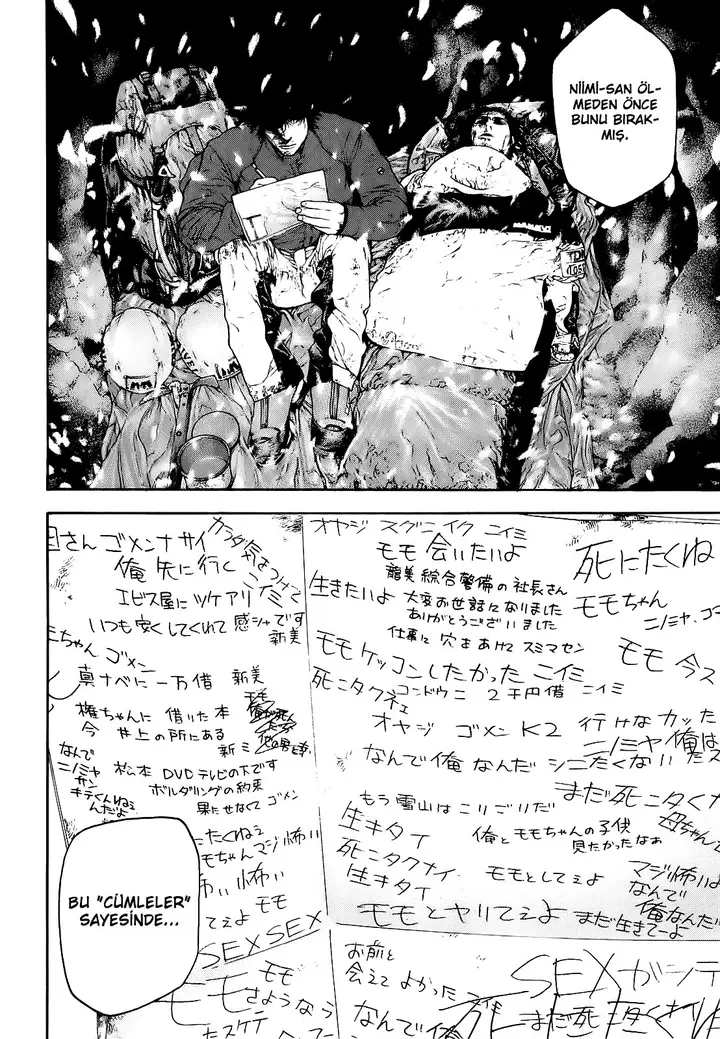 NİİMİ-SAN ÖL-
MEDEN ÖNCE
BUNU BIRAK-
MIŞ.
さん ゴメンナサイ
俺 先に行く
ニイミ
エビス屋に ツケアリ
いつも安くしてくれて 感シャです
新美
ちゃん ゴメン
真ナベに 一万借 新美
権ちゃんに 借りた本
今 井上の所にある
新ミ
なんで
ニノミヤ
サン
キテくんねぇ
んだよ
松本 DVD テレビの下です
ボルダリングの約束
果たせなくて ゴメン
オヤジ スグニイク ニイミ
モモ 会いたいよ
生きたいよ
龍美綜合警備の社長さん
大変お世話になりました
ありがとうございました
仕事に穴をあけて スミマセン
モモ ケッコンしたかった ニイミ
死ニタクネェ
コンドウニ 2千円借 ニイミ
オヤジ ゴメン K2 行けなカッた
なんで俺なんだ
もう雪山はこりごりだ
生キタイ
俺とモモちゃんの子供
見たかったなぁ
死ニタクナイ
生キタイ
モモとしてぇよ
モモとヤりてぇよ
まだ生きてーよ
死にたくね
モモちゃん
モモ 今ス
ニノミヤ 俺は
まだ死ニタくナ
母ちゃん
マジ怖いよ
なんで
俺なんだ
BU "CÜMLELER"
SAYESİNDE...
たくねぇ
モちゃん マジ怖い
怖い 怖い
モモ
てぇよ
SEX SEX
モモ
さようなら
たスケテ
お前と
会えてよかった
なんで俺
SEXがシテ
まだ死